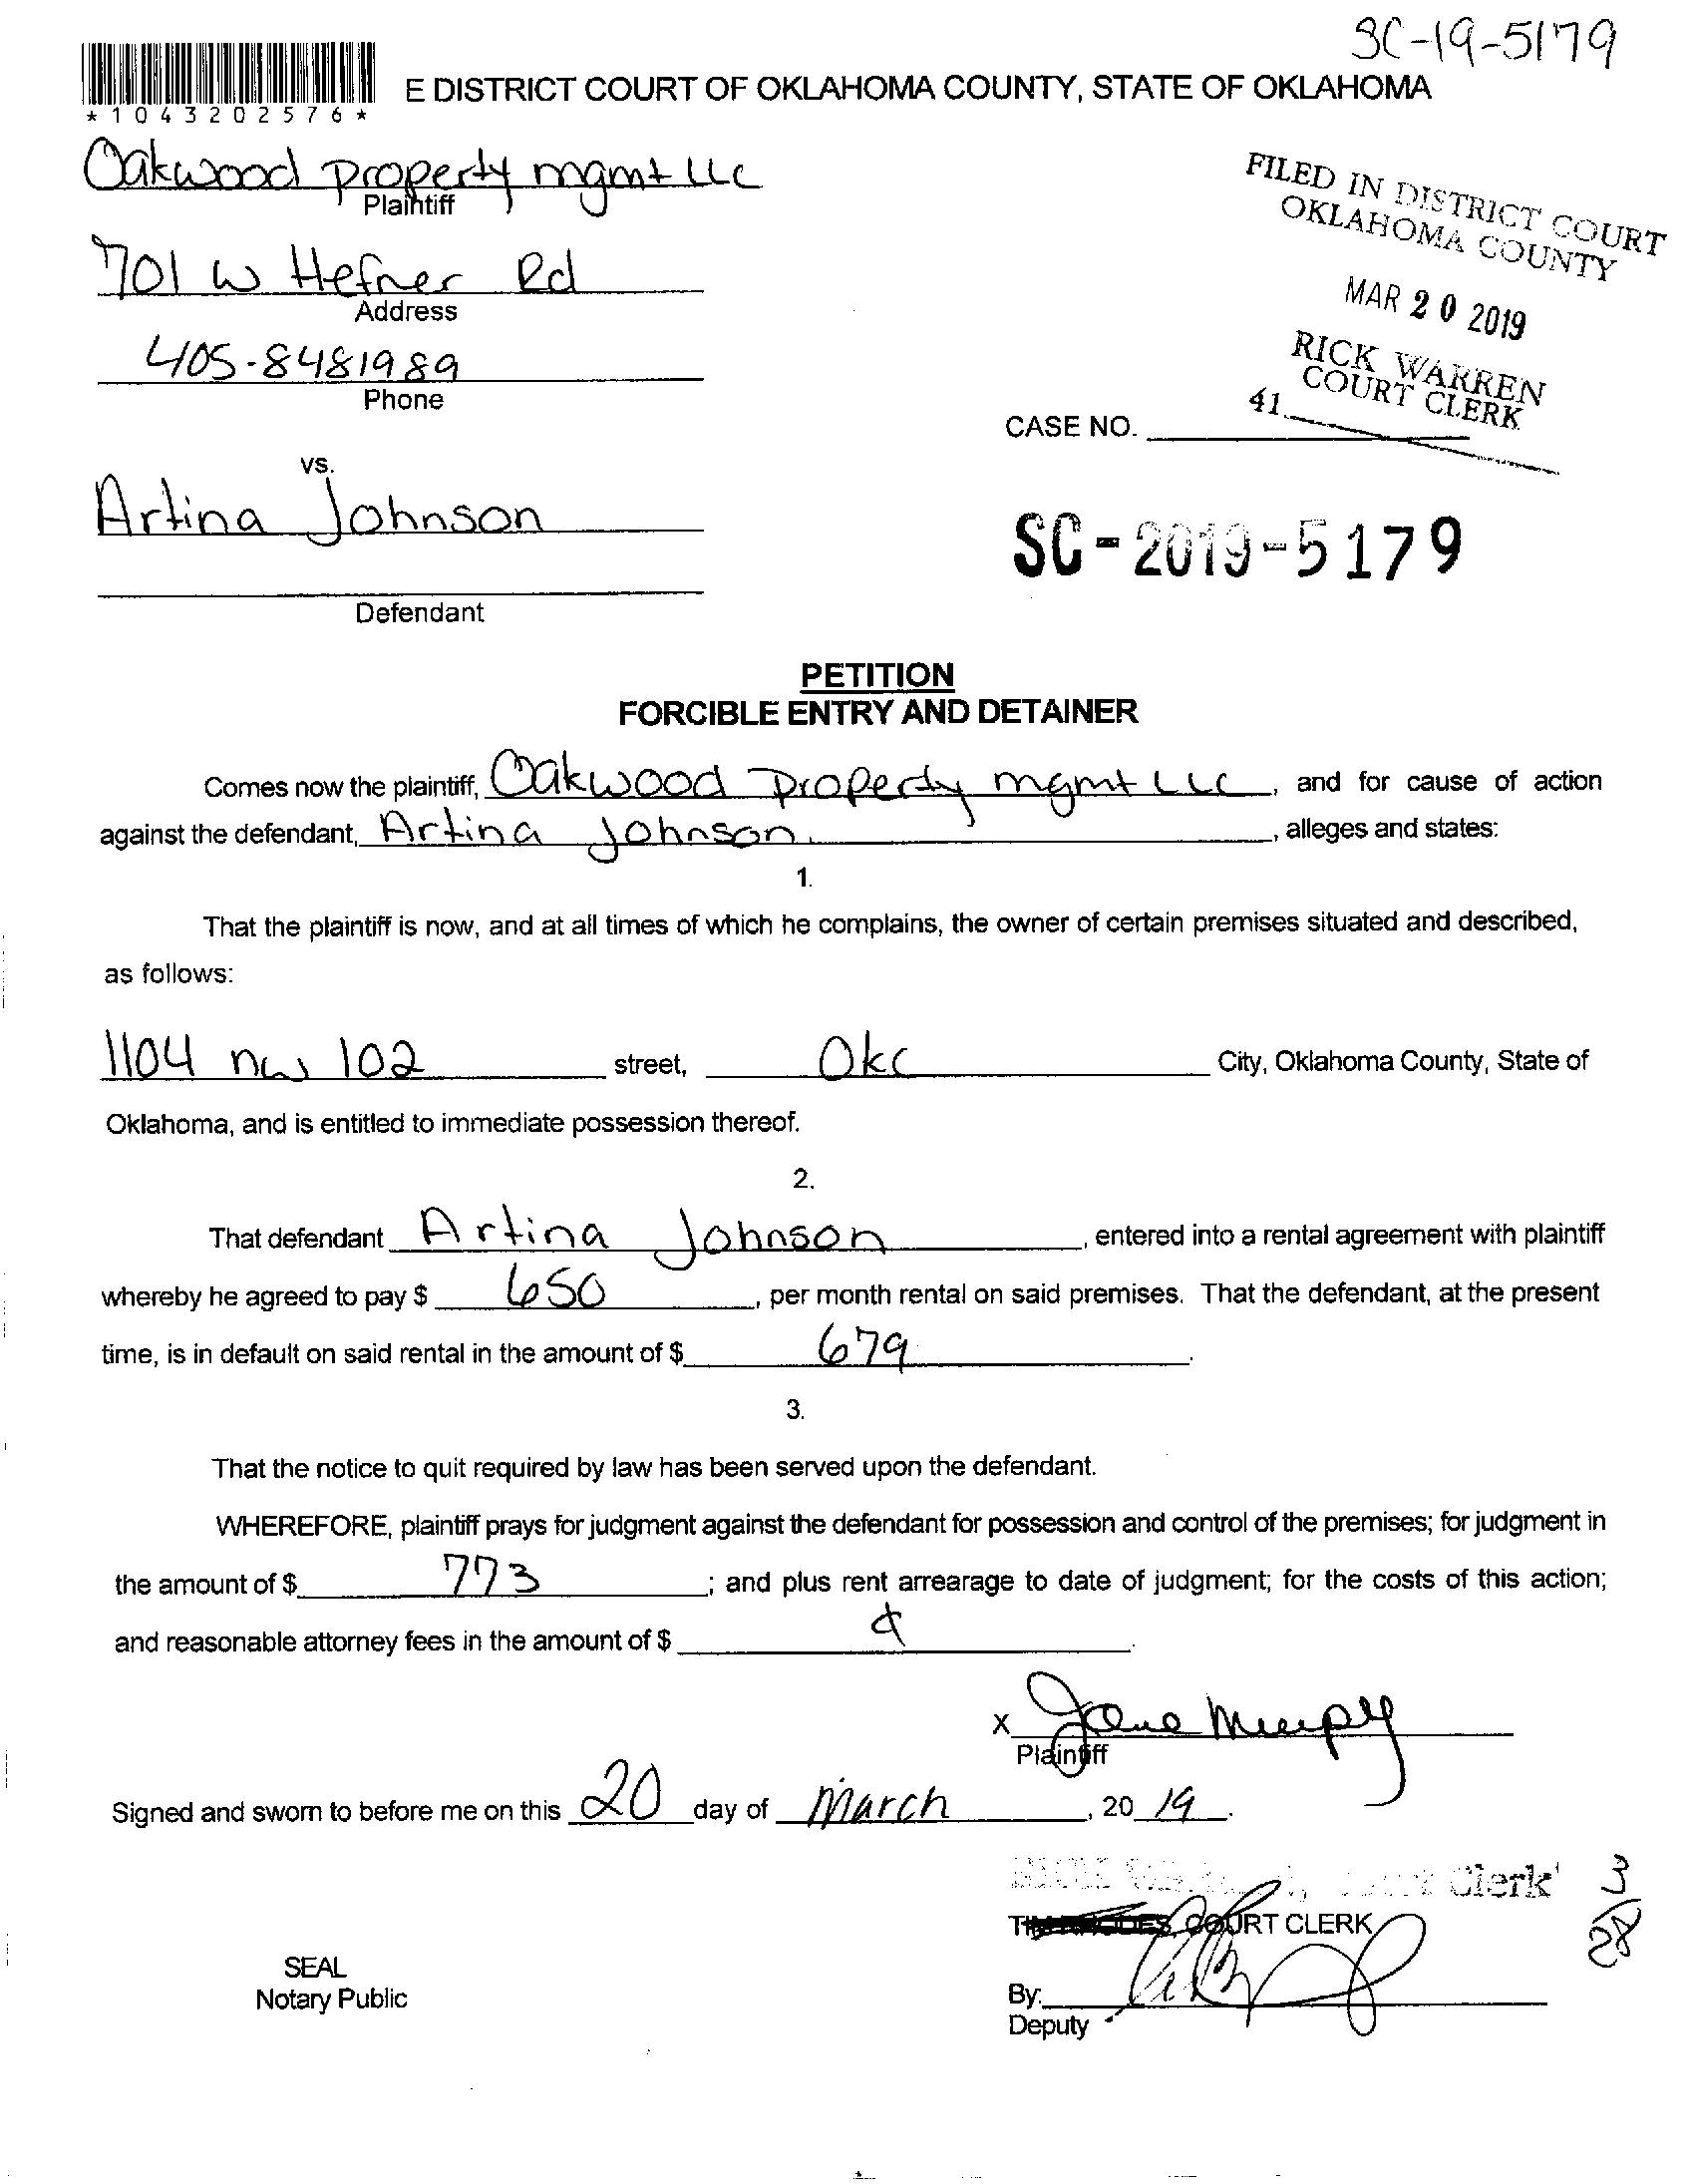 SC-19-5179
*1043202576*
E DISTRICT COURT OF OKLAHOMA COUNTY, STATE OF OKLAHOMA
Oakwood property mgmt LLC
Plaintiff
FILED IN DISTRICT COURT
OKLAHOMA COUNTY
701 W Hefner Rd
Address
MAR 20 2019
405-8481989
Phone
RICK WARREN
COURT CLERK
41
CASE NO.
vs.
Artina Johnson
SC-2019-5179
Defendant
PETITION
FORCIBLE ENTRY AND DETAINER
Comes now the plaintiff, Oakwood Property mgmt LLC, and for cause of action
against the defendant, Artina Johnson, alleges and states:
1.
That the plaintiff is now, and at all times of which he complains, the owner of certain premises situated and described,
as follows:
1104 nw 102 street, Okc City, Oklahoma County, State of
Oklahoma, and is entitled to immediate possession thereof.
2.
That defendant Artina Johnson, entered into a rental agreement with plaintiff
whereby he agreed to pay $ 650, per month rental on said premises. That the defendant, at the present
time, is in default on said rental in the amount of $ 679.
3.
That the notice to quit required by law has been served upon the defendant.
WHEREFORE, plaintiff prays for judgment against the defendant for possession and control of the premises; for judgment in
the amount of $ 773; and plus rent arrearage to date of judgment; for the costs of this action;
and reasonable attorney fees in the amount of $ .
X Jane Murphy
Plaintiff
Signed and sworn to before me on this 20 day of March, 20 19.
Clerk
COURT CLERK
3/28
SEAL
Notary Public
By:
Deputy